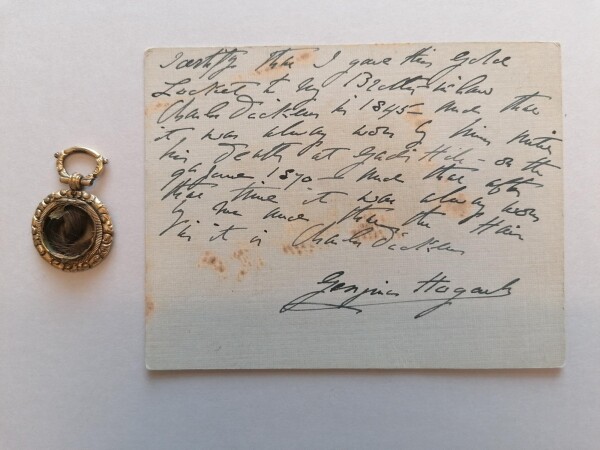 I certify that I gave this Gold
Locket to my Brother-in-law
Charles Dickens in 1845 – and that
it was always worn by him until
his death at Gad's Hill – on the
9th June 1870 – and that after
that time it was always worn
by me and that the Hair
in it is Charles Dickens
Georgina Hogarth